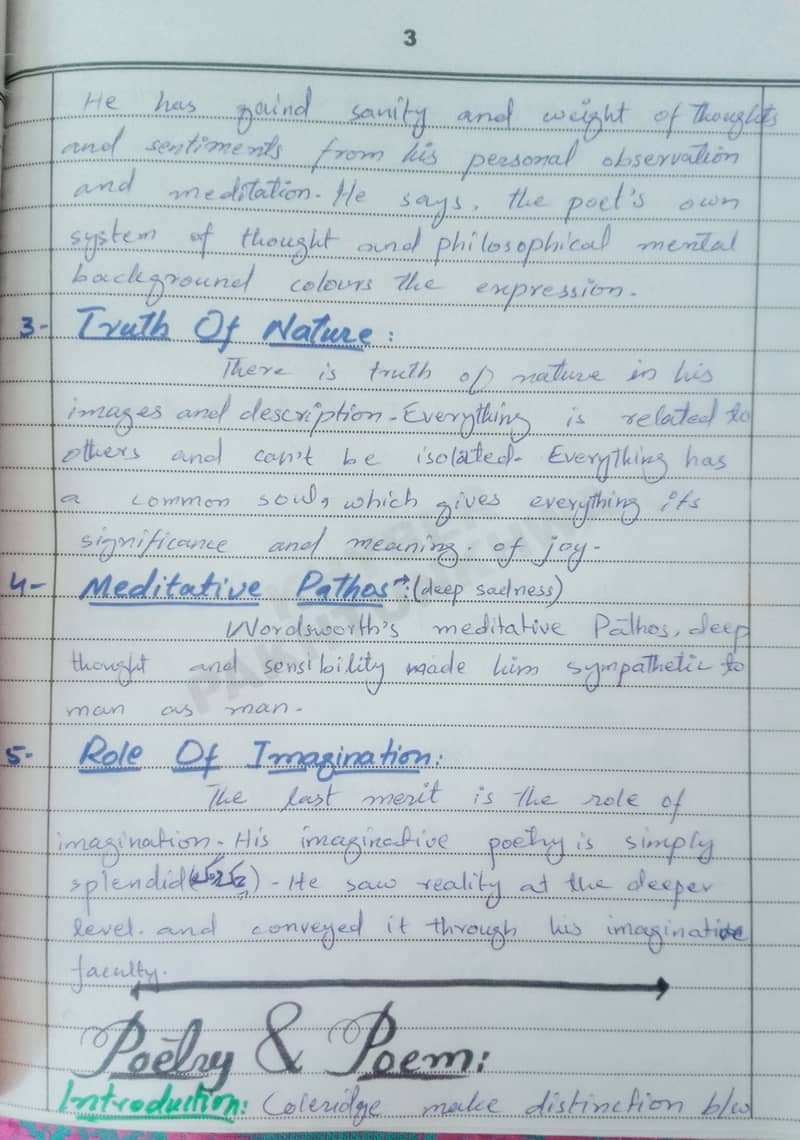 3
He has gaind sanity and weight of thoughts
and sentiments from his personal observation
and meditation. He says, the poet's own
system of thought and philosophical mental
background colours the expression.
3- Truth Of Nature:
There is truth of nature in his
images and description. Everything is related to
others and can't be isolated. Everything has
a common soul, which gives everything its
significance and meaning. of joy.
4- Meditative Pathos:(deep sadness)
Wordsworth's meditative Pathos, deep
thought and sensibility made him sympathetic to
man as man.
5- Role Of Imagination:
The last merit is the role of
imagination. His imaginative poetry is simply
splendid. He saw reality at the deeper
level. and conveyed it through his imaginative
faculty.
Poetry & Poem:
Introduction: Coleridge make distinction b/w